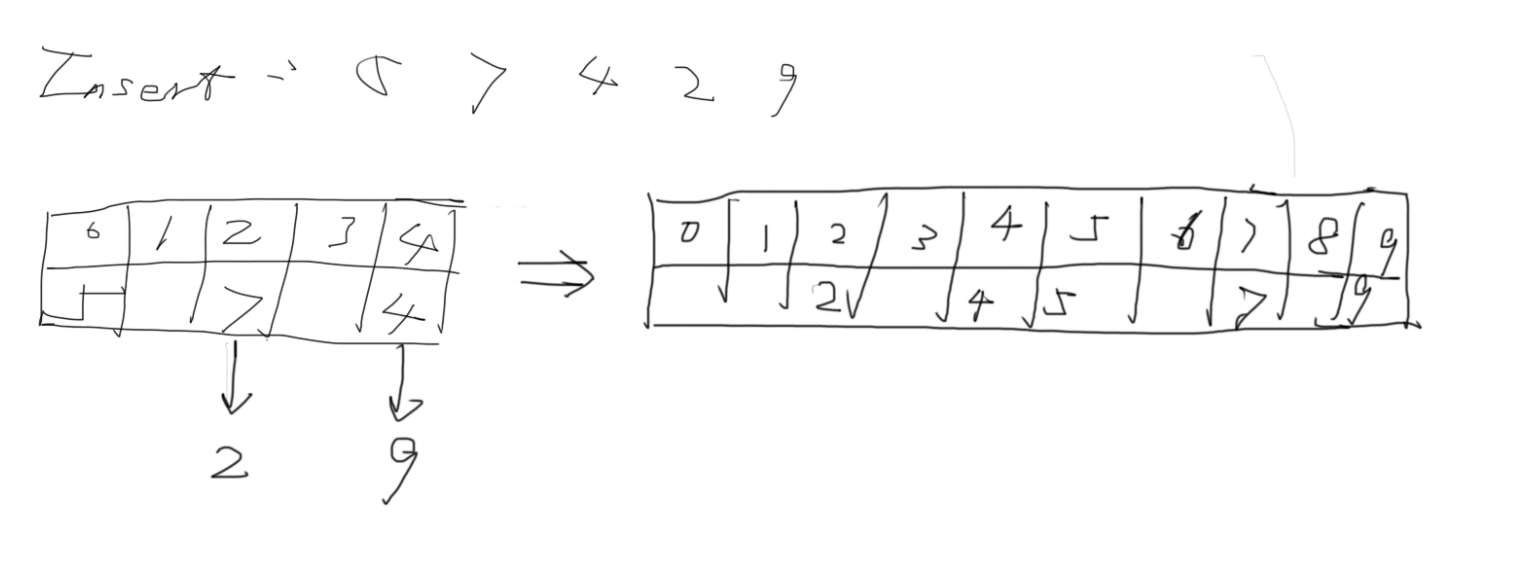 Insert : 5 7 4 2 9
0 1 2 3 4
5 7 4
2 9
0 1 2 3 4 5 6 7 8 9
2 4 5 7 9